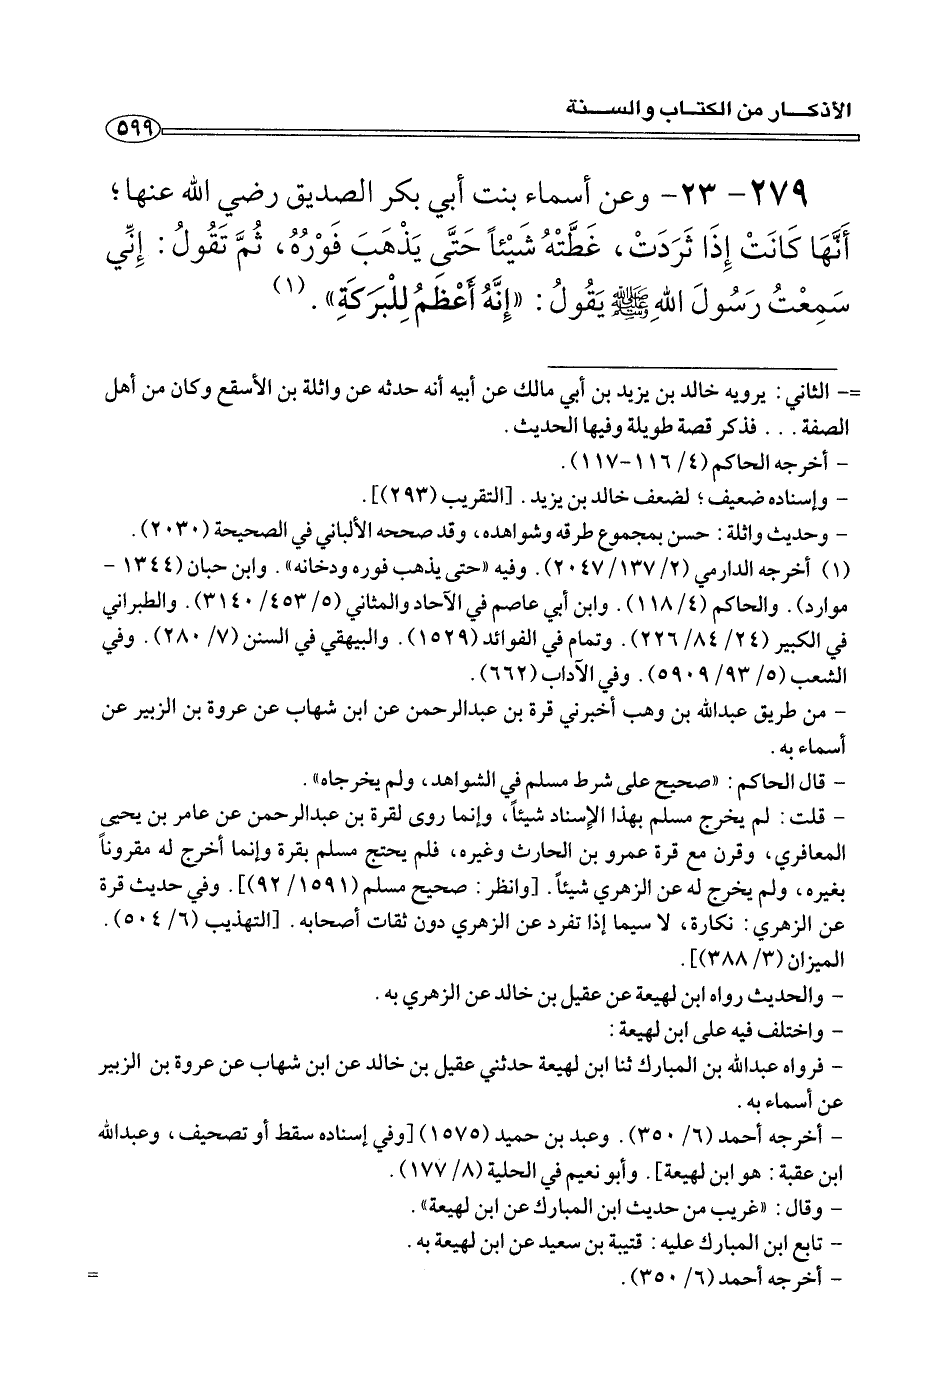 الأذكـــار من الكتـاب والســـنة
٥٩٩
٢٧٩- ٢٣- وعن أسماء بنت أبي بكر الصديق رضي الله عنها؛
أَنَّهَا كَانَتْ إِذَا ثَرَدَتْ، غَطَّتْهُ شَيْئاً حَتَّى يَذْهَبَ فَوْرُهُ، ثُمَّ تَقُولُ: إِنِّي
سَمِعْتُ رَسُولَ اللهِ ﷺ يَقُولُ: «إِنَّهُ أَعْظَمُ لِلْبَرَكَةِ».(١)
=- الثاني: يرويه خالد بن يزيد بن أبي مالك عن أبيه أنه حدثه عن واثلة بن الأسقع وكان من أهل
الصفة ... فذكر قصة طويلة وفيها الحديث.
- أخرجه الحاكم (٤/ ١١٦-١١٧).
- وإسناده ضعيف؛ لضعف خالد بن يزيد. [التقريب (٢٩٣)].
- وحديث واثلة: حسن بمجموع طرقه وشواهده، وقد صححه الألباني في الصحيحة (٢٠٣٠).
(١) أخرجه الدارمي (٢/ ١٣٧/ ٢٠٤٧). وفيه «حتى يذهب فوره ودخانه». وابن حبان (١٣٤٤ -
موارد). والحاكم (٤/ ١١٨). وابن أبي عاصم في الآحاد والمثاني (٥/ ٤٥٣/ ٣١٤٠). والطبراني
في الكبير (٢٤/ ٨٤/ ٢٢٦). وتمام في الفوائد (١٥٢٩). والبيهقي في السنن (٧/ ٢٨٠). وفي
الشعب (٥/ ٩٣/ ٥٩٠٩). وفي الآداب (٦٦٢).
- من طريق عبدالله بن وهب أخبرني قرة بن عبدالرحمن عن ابن شهاب عن عروة بن الزبير عن
أسماء به.
- قال الحاكم: «صحيح على شرط مسلم في الشواهد، ولم يخرجاه».
- قلت: لم يخرج مسلم بهذا الإسناد شيئاً، وإنما روى لقرة بن عبدالرحمن عن عامر بن يحيى
المعافري، وقرن مع قرة عمرو بن الحارث وغيره، فلم يحتج مسلم بقرة وإنما أخرج له مقروناً
بغيره، ولم يخرج له عن الزهري شيئاً. [وانظر: صحيح مسلم (١٥٩١/ ٩٢)]. وفي حديث قرة
عن الزهري: نكارة، لا سيما إذا تفرد عن الزهري دون ثقات أصحابه. [التهذيب (٦/ ٥٠٤).
الميزان (٣/ ٣٨٨)].
- والحديث رواه ابن لهيعة عن عقيل بن خالد عن الزهري به.
- واختلف فيه على ابن لهيعة:
- فرواه عبدالله بن المبارك ثنا ابن لهيعة حدثني عقيل بن خالد عن ابن شهاب عن عروة بن الزبير
عن أسماء به.
- أخرجه أحمد (٦/ ٣٥٠). وعبد بن حميد (١٥٧٥) [وفي إسناده سقط أو تصحيف، وعبدالله
ابن عقبة: هو ابن لهيعة]. وأبو نعيم في الحلية (٨/ ١٧٧).
- وقال: «غريب من حديث ابن المبارك عن ابن لهيعة».
- تابع ابن المبارك عليه: قتيبة بن سعيد عن ابن لهيعة به.
- أخرجه أحمد (٦/ ٣٥٠). =